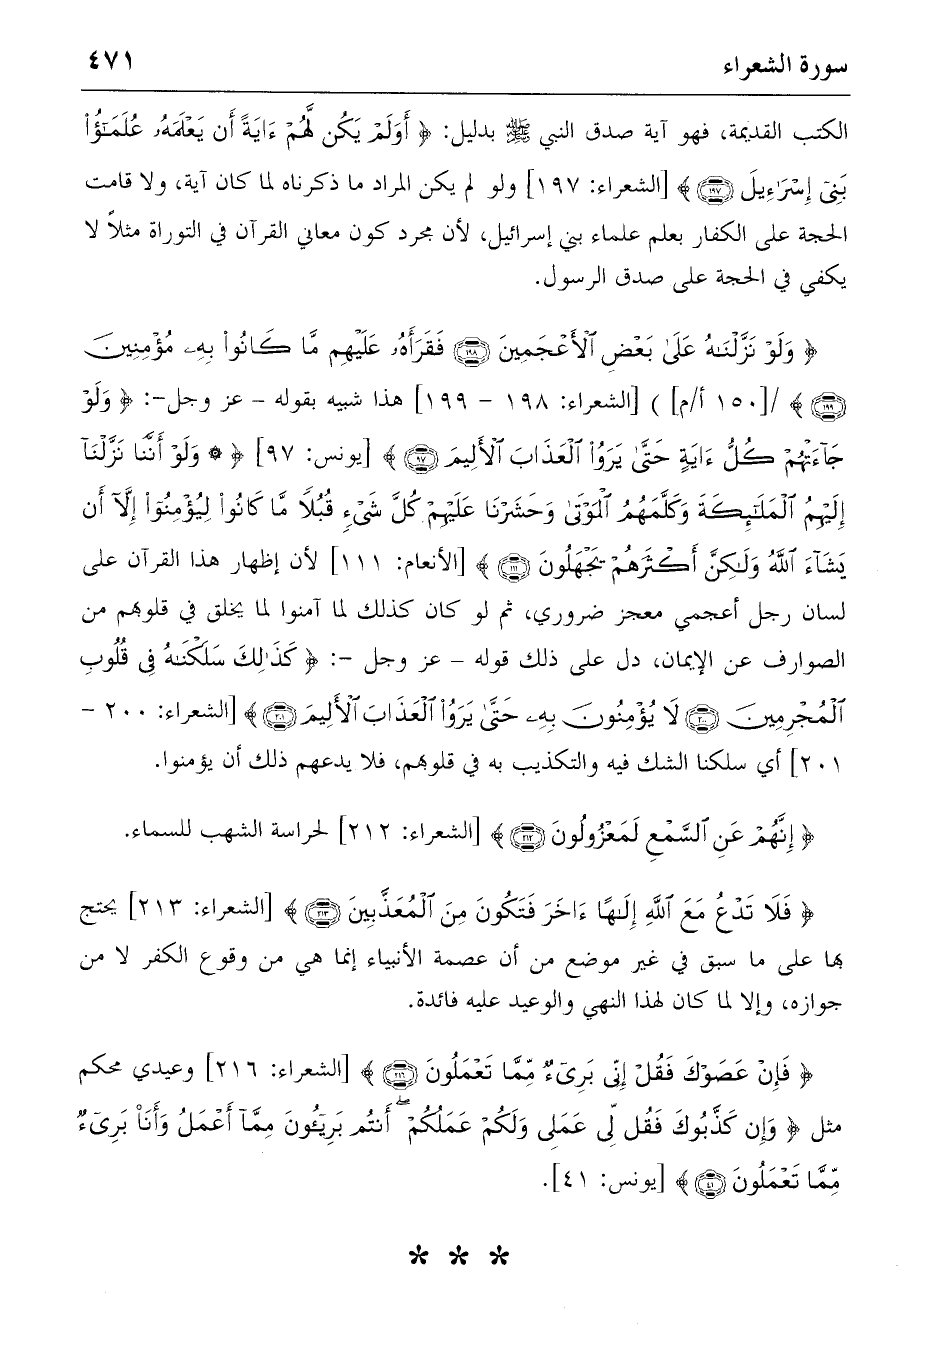 سورة الشعراء ٤٧١
الكتب القديمة، فهو آية صدق النبي ﷺ بدليل: ﴿ أَوَلَمْ يَكُن لَّهُمْ ءَايَةً أَن يَعْلَمَهُۥ عُلَمَٰٓؤُا۟
بَنِىٓ إِسْرَٰٓءِيلَ ۝١٩٧ ﴾ [الشعراء: ١٩٧] ولو لم يكن المراد ما ذكرناه لما كان آية، ولا قامت
الحجة على الكفار بعلم علماء بني إسرائيل، لأن مجرد كون معاني القرآن في التوراة مثلاً لا
يكفي في الحجة على صدق الرسول.
﴿ وَلَوْ نَزَّلْنَٰهُ عَلَىٰ بَعْضِ ٱلْأَعْجَمِينَ ۝١٩٨ فَقَرَأَهُۥ عَلَيْهِم مَّا كَانُوا۟ بِهِۦ مُؤْمِنِينَ
۝١٩٩ ﴾ /[١٥٠ أ/م] ) [الشعراء: ١٩٨ - ١٩٩] هذا شبيه بقوله - عز وجل-: ﴿ وَلَوْ
جَآءَتْهُمْ كُلُّ ءَايَةٍ حَتَّىٰ يَرَوُا۟ ٱلْعَذَابَ ٱلْأَلِيمَ ۝٩٧ ﴾ [يونس: ٩٧] ﴿ * وَلَوْ أَنَّنَا نَزَّلْنَآ
إِلَيْهِمُ ٱلْمَلَٰٓئِكَةَ وَكَلَّمَهُمُ ٱلْمَوْتَىٰ وَحَشَرْنَا عَلَيْهِمْ كُلَّ شَىْءٍ قُبُلًا مَّا كَانُوا۟ لِيُؤْمِنُوٓا۟ إِلَّآ أَن
يَشَآءَ ٱللَّهُ وَلَٰكِنَّ أَكْثَرَهُمْ يَجْهَلُونَ ۝١١١ ﴾ [الأنعام: ١١١] لأن إظهار هذا القرآن على
لسان رجل أعجمي معجز ضروري، ثم لو كان كذلك لما آمنوا لما يخلق في قلوبهم من
الصوارف عن الإيمان، دل على ذلك قوله - عز وجل -: ﴿ كَذَٰلِكَ سَلَكْنَٰهُ فِى قُلُوبِ
ٱلْمُجْرِمِينَ ۝٢٠٠ لَا يُؤْمِنُونَ بِهِۦ حَتَّىٰ يَرَوُا۟ ٱلْعَذَابَ ٱلْأَلِيمَ ۝٢٠١ ﴾ [الشعراء: ٢٠٠ -
٢٠١] أي سلكنا الشك فيه والتكذيب به في قلوبهم، فلا يدعهم ذلك أن يؤمنوا.
﴿ إِنَّهُمْ عَنِ ٱلسَّمْعِ لَمَعْزُولُونَ ۝٢١٢ ﴾ [الشعراء: ٢١٢] لحراسة الشهب للسماء.
﴿ فَلَا تَدْعُ مَعَ ٱللَّهِ إِلَٰهًا ءَاخَرَ فَتَكُونَ مِنَ ٱلْمُعَذَّبِينَ ۝٢١٣ ﴾ [الشعراء: ٢١٣] يحتج
بها على ما سبق في غير موضع من أن عصمة الأنبياء إنما هي من وقوع الكفر لا من
جوازه، وإلا لما كان لهذا النهي والوعيد عليه فائدة.
﴿ فَإِنْ عَصَوْكَ فَقُلْ إِنِّى بَرِىٓءٌ مِّمَّا تَعْمَلُونَ ۝٢١٦ ﴾ [الشعراء: ٢١٦] وعيدي محكم
مثل ﴿ وَإِن كَذَّبُوكَ فَقُل لِّى عَمَلِى وَلَكُمْ عَمَلُكُمْ ۖ أَنتُم بَرِيٓـُٔونَ مِمَّآ أَعْمَلُ وَأَنَا۠ بَرِىٓءٌ
مِّمَّا تَعْمَلُونَ ۝٤١ ﴾ [يونس: ٤١].
* * *